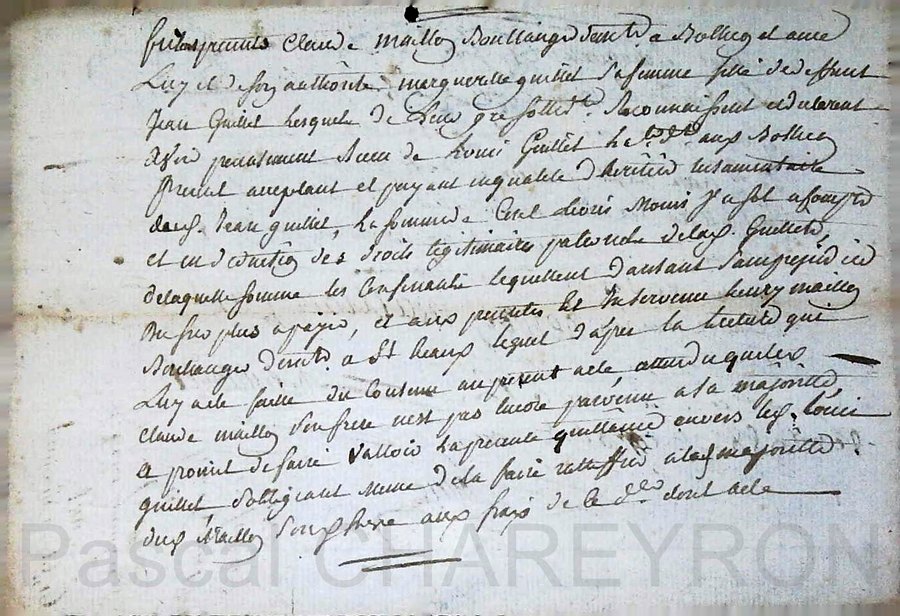 furent presents Claude Maillon Boullanger dem.t a Bolleg et avec
Luy et de son authorité, margueritte guillet sa femme fille de deffunt
Jean Guillet lesquels de Leur gré sollid.t Reconnaissent et déclarent
avoir presentement Receu de Louis Guillet hab.t dud. aux
present acceptant et payant en qualité d heritier testamentaire
dud. Jean guillet, La somme de Cent Livres Moins J a fol a compte
et en déduction des droits légitimaires de lad. Guillet,
de laquelle somme les Confinants le quittent d autant sans préjudice
du sur plus a payer, et aux presentes Est Intervenu heury maillon
Boulanger dem.t a lequel d aprés la Lecture qui
Luy a eté faitte du Contenu au present acte attendu que led.
Claude maillon son frere n'est pas encore parvenu a sa majoritté,
a promit de faire Valloir La presente quittance envers led. Louis
guillet, s'obligeant meme de la faire rattiffier a lad majoritté
dud. Maillon son frere aux fraix de Ce d.er dont acte
Pascal CHAREYRON